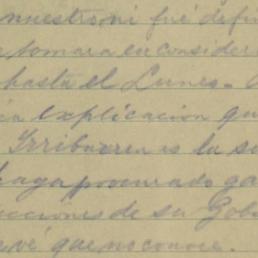 nuestro ni fué defi
tomara en consider
hasta el Lunes.
explicacion qu
Irribarren es la
haya procurado ga
cciones de su Gob
vé que no conoce.